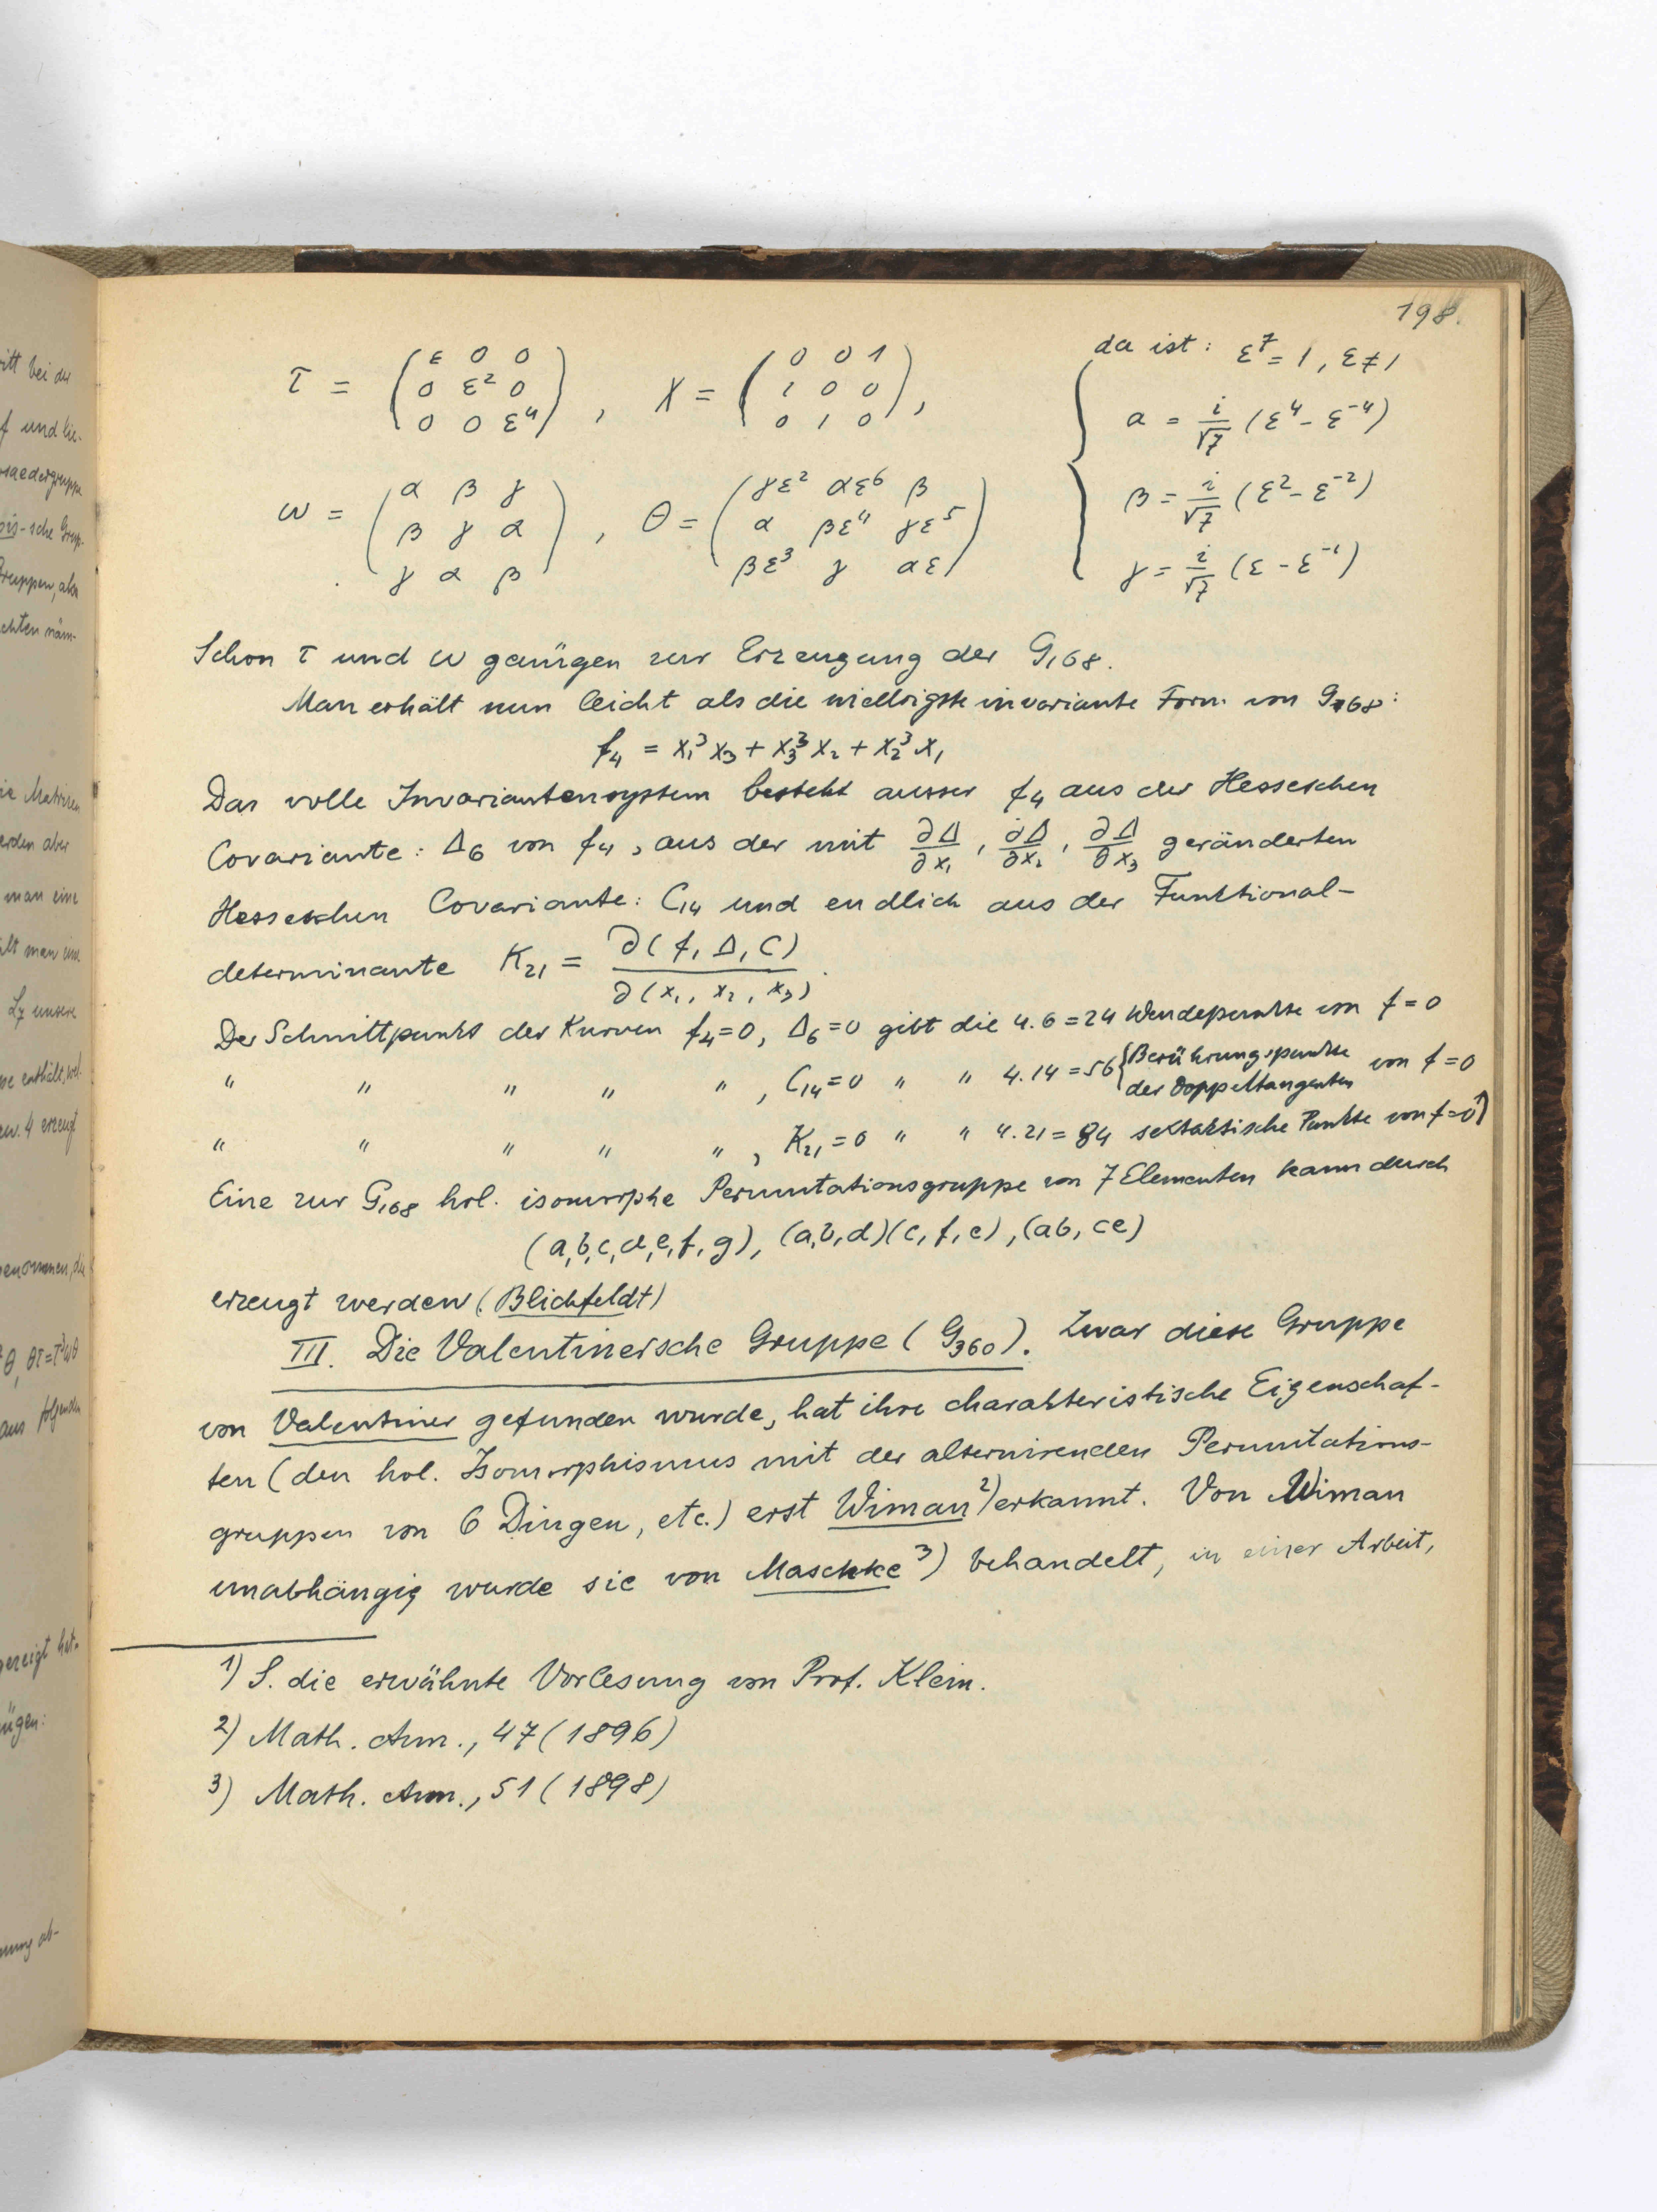 198.
τ = (ε 0 0 / 0 ε² 0 / 0 0 ε⁴), χ = (0 0 1 / 1 0 0 / 0 1 0),
da ist: ε⁷ = 1, ε ≠ 1
α = i/√7 (ε⁴ - ε⁻⁴)
ω = (α β γ / β γ α / γ α β), θ = (γε² αε⁶ β / α βε⁴ γε⁵ / βε³ γ αε)
β = i/√7 (ε² - ε⁻²)
γ = i/√7 (ε - ε⁻¹)
Schon τ und ω genügen zur Erzeugung der G₁₆₈.
Man erhält nun leicht als die niedrigste invariante Form von G₁₆₈:
f₄ = x₁³x₃ + x₃³x₂ + x₂³x₁
Das volle Invariantensystem besteht ausser f₄ aus der Hesseschen
Covariante: Δ₆ von f₄, aus der mit ∂Δ/∂x₁, ∂Δ/∂x₂, ∂Δ/∂x₃ geränderten
Hesseschen Covariante: C₁₄ und endlich aus der Funktional-
determinante K₂₁ = ∂(f, Δ, C)/∂(x₁, x₂, x₃).
Der Schnittpunkt der Kurven f₄=0, Δ₆=0 gibt die 4.6=24 Wendepunkte von f=0
" " " " " , C₁₄=0 " " 4.14=56 {Berührungspunkte der Doppeltangenten von f=0
" " " " " , K₂₁=0 " " 4.21=84 sextaktische Punkte von f=0¹)
Eine zur G₁₆₈ hol. isomorphe Permutationsgruppe von 7 Elementen kann durch
(a,b,c,d,e,f,g), (a,b,d)(c,f,e), (ab, ce)
erzeugt werden (Blichfeldt)
III. Die Valentinersche Gruppe (G₃₆₀). Zwar diese Gruppe
von Valentiner gefunden wurde, hat ihre charakteristische Eigenschaf-
ten (den hol. Isomorphismus mit der alternirenden Permutations-
gruppen von 6 Dingen, etc.) erst Wiman²) erkannt. Von Wiman
unabhängig wurde sie von Maschke³) behandelt, in einer Arbeit,
1) S. die erwähnte Vorlesung von Prof. Klein.
2) Math. Ann., 47 (1896)
3) Math. Ann., 51 (1898)